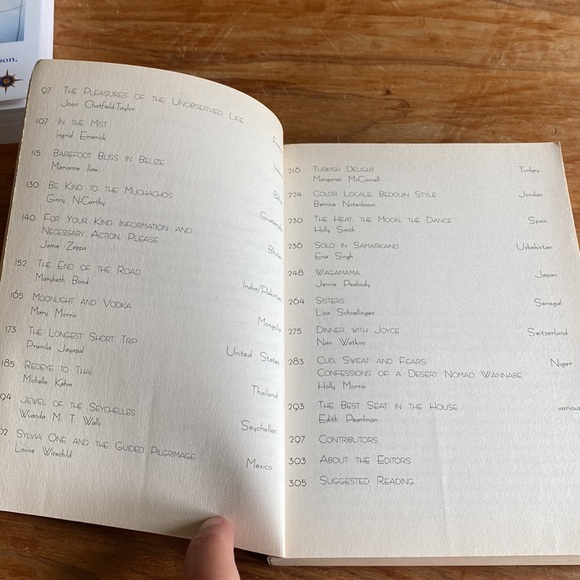 son,
97 The Pleasures of the Unobserved Life
Joan Chatfield-Taylor
107 In the Mist
Ingrid Emerick
115 Barefoot Bliss in Belize
Marianne Ilaw
130 Be Kind to the Muchachos
Ginny NiCarthy
Guatemala
140 For Your Kind Information and
Necessary Action, Please
Jamie Zeppa
Bhutan
152 The End of the Road
Marybeth Bond
India/Pakistan
165 Moonlight and Vodka
Mary Morris
Mongolia
173 The Longest Short Trip
Pramila Jayapal
United States
185 Redeye to Thai
Michelle Kehm
Thailand
94 Jewel of the Seychelles
Wuanda M. T. Walls
Seychelles
02 Sylvia One and the Guided Pilgrimage
Louise Wisechild
Mexico
216 Turkish Delight Turkey
Margaret McConnell
224 Color Locale, Bedouin Style Jordan
Bernice Notenboom
230 The Heat, the Moon, the Dance Spain
Holly Smith
236 Solo in Samarkand Uzbekistan
Ena Singh
248 Wagamama Japan
Jennie Peabody
264 Sisters Senegal
Lisa Schnellinger
275 Dinner with Joyce Switzerland
Nan Watkins
283 Cud, Sweat and Fears: Niger
Confessions of a Desert Nomad Wannabe
Holly Morris
293 The Best Seat in the House various
Edith Pearlman
297 Contributors
303 About the Editors
305 Suggested Reading